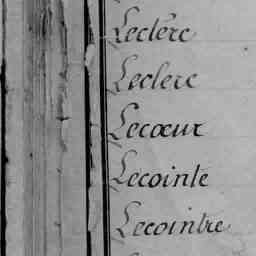 Leclerc
Leclerc
Lecœur
Lecointe
Lecointre